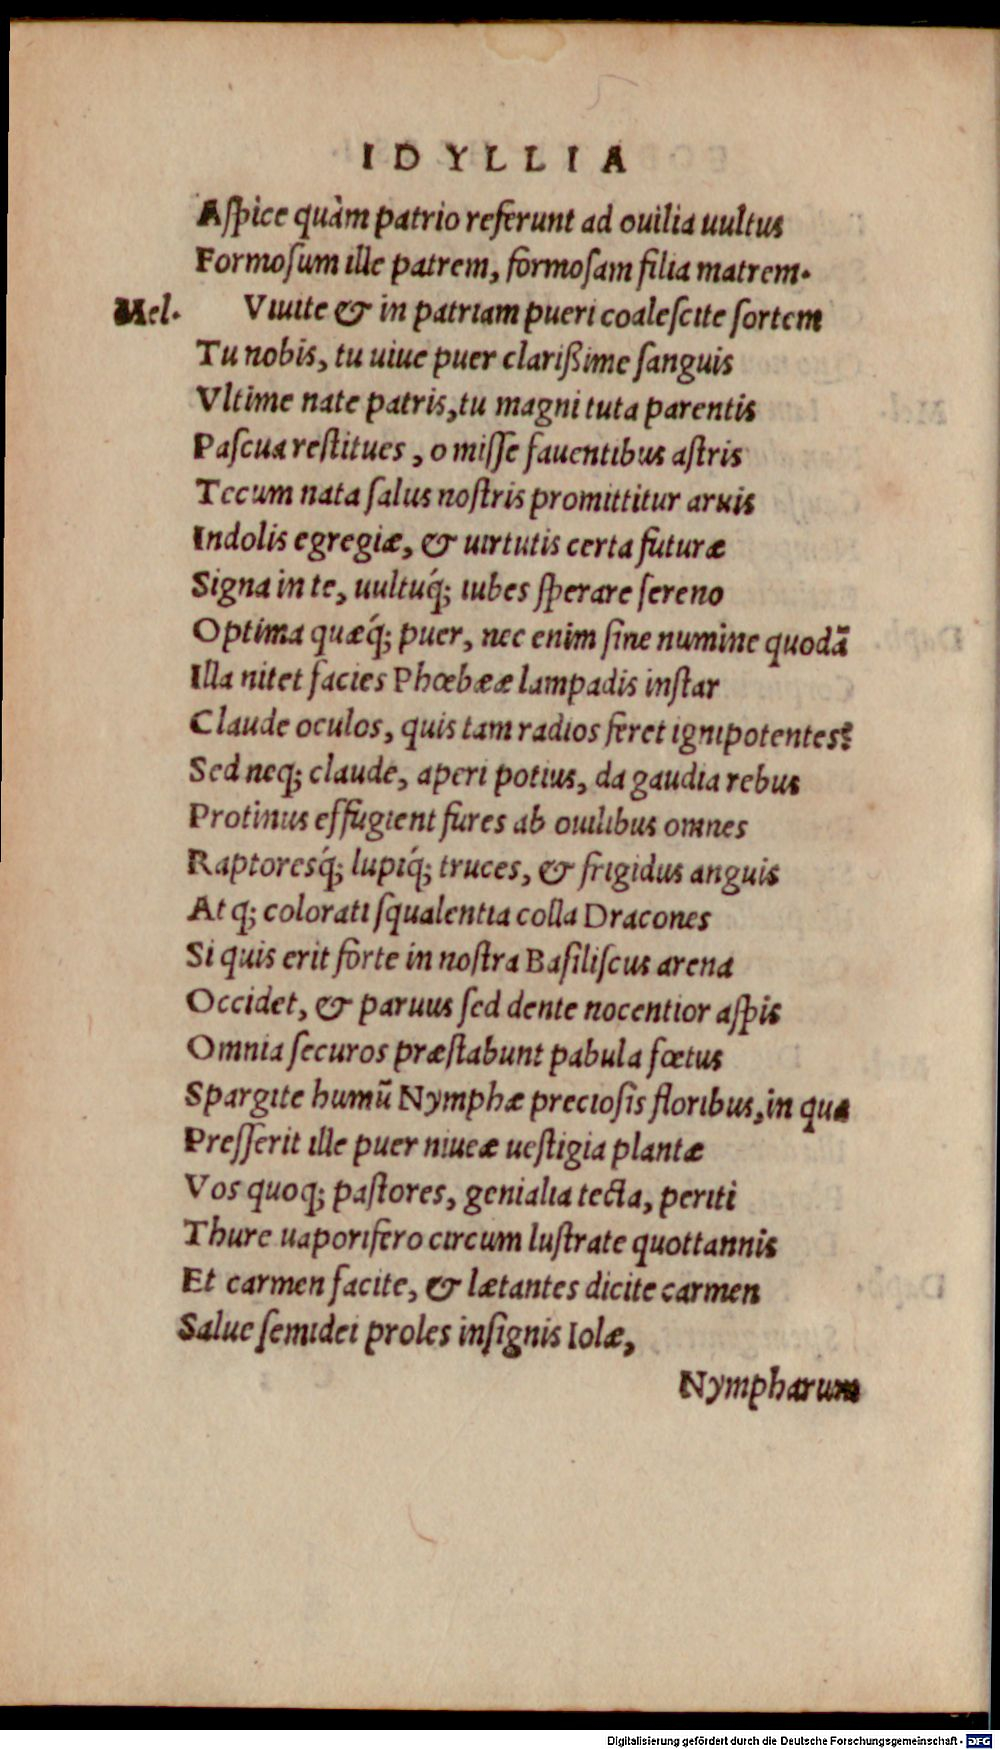 IDYLLIA
Aſpice quàm patrio referunt ad ouilia uultus
Formoſum ille patrem, formoſam filia matrem.
Mel. Viuite & in patriam pueri coaleſcite ſortem
Tu nobis, tu uiue puer clarißime ſanguis
Vltime nate patris, tu magni tuta parentis
Paſcua reſtitues, o miſſe fauentibus aſtris
Tecum nata ſalus noſtris promittitur aruis
Indolis egregiæ, & uirtutis certa futuræ
Signa in te, uultuq́; iubes ſperare ſereno
Optima quæq́; puer, nec enim ſine numine quodā
Illa nitet facies Phœbææ lampadis inſtar
Claude oculos, quis tam radios feret ignipotentes?
Sed neq; claude, aperi potius, da gaudia rebus
Protinus effugient fures ab ouilibus omnes
Raptoresq́; lupiq́; truces, & frigidus anguis
At q; colorati ſqualentia colla Dracones
Si quis erit forte in noſtra Baſiliſcus arena
Occidet, & paruus ſed dente nocentior aſpis
Omnia ſecuros præſtabunt pabula fœtus
Spargite humū Nymphæ precioſis floribus, in qua
Preſſerit ille puer niueæ ueſtigia plantæ
Vos quoq; paſtores, genialia tecta, periti
Thure uaporifero circum luſtrate quottannis
Et carmen facite, & lætantes dicite carmen
Salue ſemidei proles inſignis Iolæ,
Nympharum
Digitalisierung gefördert durch die Deutsche Forschungsgemeinschaft - DFG